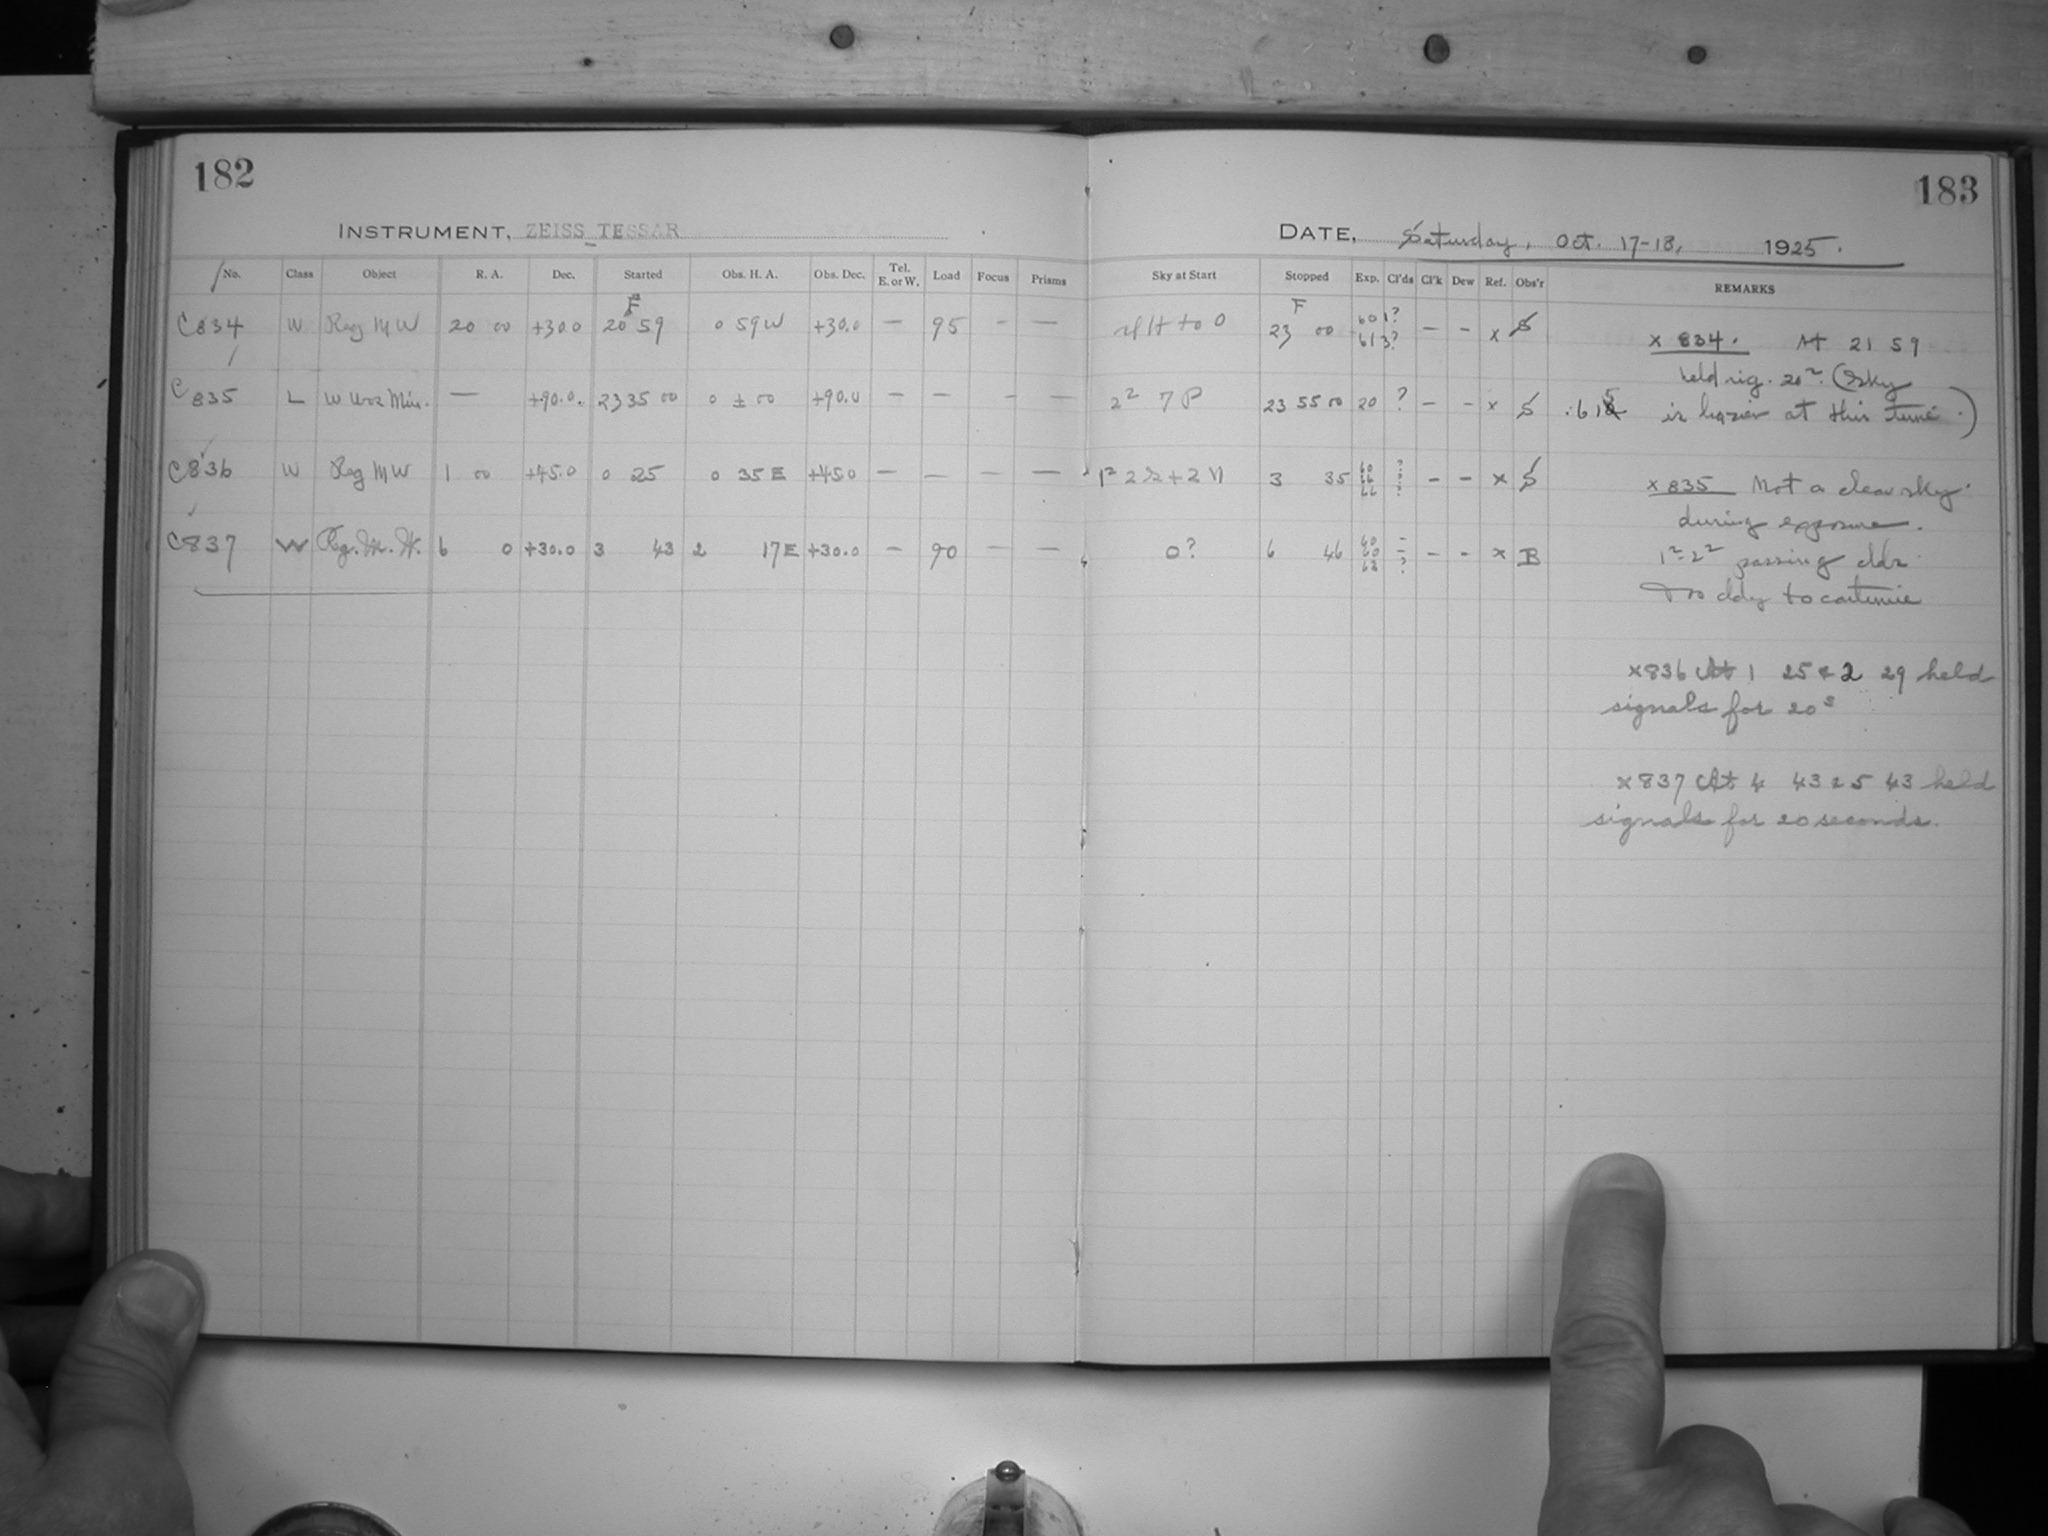 182
183
INSTRUMENT, ZEISS TESSAR
DATE, Saturday, Oct. 17-18, 1925.
No. Class Object R. A. Dec. Started Obs. H. A. Obs. Dec. Tel. E. or W. Load Focus Prisms Sky at Start Stopped Exp. Cl'ds Cl'k Dew Ref. Obs'r REMARKS
F F
C834 W Reg MW 20 00 +30.0 20 59 0 59 W +30.0 — 95 - — to 0 23 00 60 1? 61 3? — - x S
x 834. At 21 59
held sig. 20s. (Sky
C835 L — +90.0. 23 35 00 0 ± 00 +90.0 — — - — 22 7 P 23 55 00 20 ? — - x S
is hazier at this time.)
C836 W Reg MW 1 00 +45.0 0 25 0 35 E +45.0 — — — — 3 35 60 ? 66 ? 66 ? - - x S
x 835 Not a clear sky
during exposure.
C837 W Rg. M. W. 6 0 +30.0 3 43 2 17 E +30.0 — 90 — — 0? 6 46 60 - 60 - 63 ? - - x B
1²-2² passing clds.
Too cldy to continue
x836 At 1 25 & 2 29 held
signals for 20s
x837 At 4 43 & 5 43 held
signals for 20 seconds.